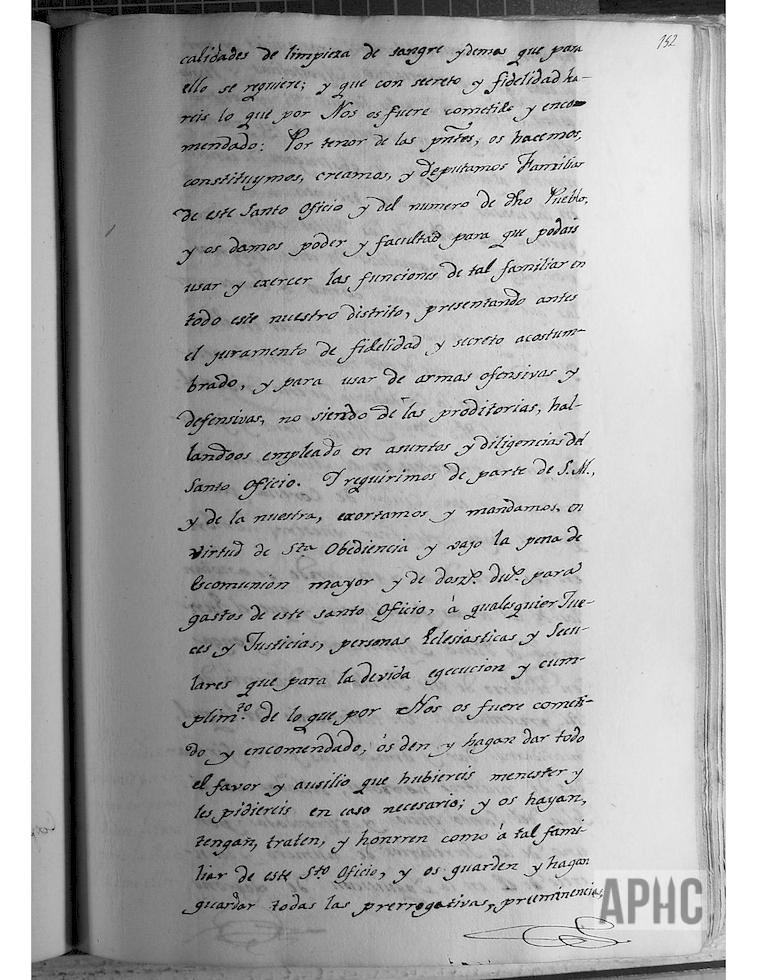 152
calidades de limpieza de sangre y demas que para
ello se requiere; y que con secreto y fidelidad ha-
reis lo que por Nos os fuere cometido y enco-
mendado: Por tenor de las pñtes, os hacemos,
constituymos, creamos, y deputamos Familiar
de este Santo Oficio y del numero de dho Pueblo,
y os damos poder y facultad para que podais
usar y exercer las funciones de tal familiar en
todo este nuestro distrito, presentando antes
el juramento de fidelidad y secreto acostum-
brado, y para usar de armas ofensivas y
defensivas, no siendo de las proditorias, hal-
landoos empleado en asuntos y diligencias del
Santo Oficio. Y requirimos de parte de S. M.,
y de la nuestra, exortamos y mandamos, en
virtud de Sta Obediencia y vajo la pena de
Escomunion mayor y de para
gastos de este santo Oficio, à qualesquier Jue-
ces y Justicias, personas Eclesiasticas y Secu-
lares que para la devida egecucion y cum-
plimto. de lo que por Nos os fuere cometi-
do y encomendado, òs den y hagan dar todo
el favor y ausilio que hubiereis menester y
les pidiereis en caso necesario; y os hayan,
tengan, traten, y honrren como à tal fami-
liar de este Sto Oficio, y os guarden y hagan
guardar todas las prerrogativas, preeminencias,
APHC